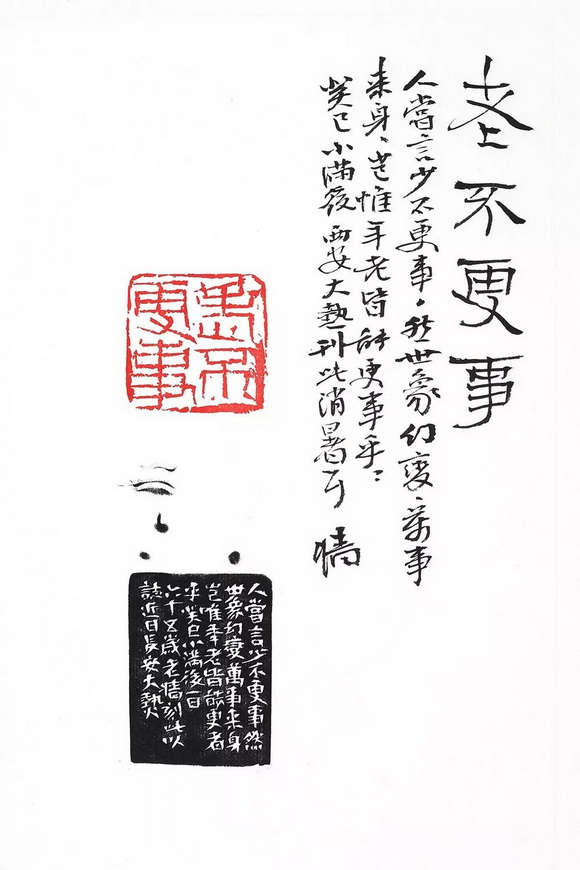 老不更事
人嘗言少不更事，然世象幻變、萬事
来身、豈惟年老皆能更事乎：
癸巳小滿後西安大熱刊此消暑
老不
更事
人嘗言少不更事然
世象幻變萬事来身
豈唯年老皆能更者
乎癸巳小滿後一日
六十五歲老刻此以
誌近日長安大熱